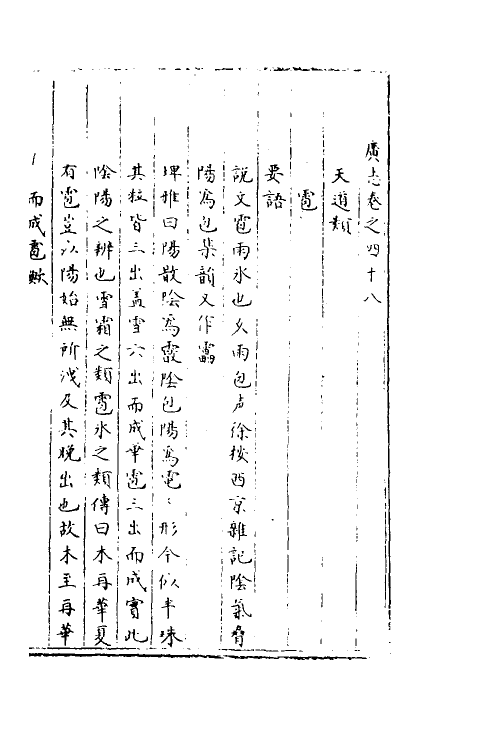 廣志卷之四十八
天道類
雹
要語
說文雹雨氷也从雨包声徐按西京雜記陰氣脅
陽為包集韻又作靁
埤雅曰陽散陰為霰陰包陽為雹〻形今似半珠
其粒皆三出盖雪六出而成華雹三出而成實此
陰陽之辨也雪霜之類雹氷之類傳曰木再華夏
有雹豈以陽始無所洩及其晚出也故木至再華
而成雹歟